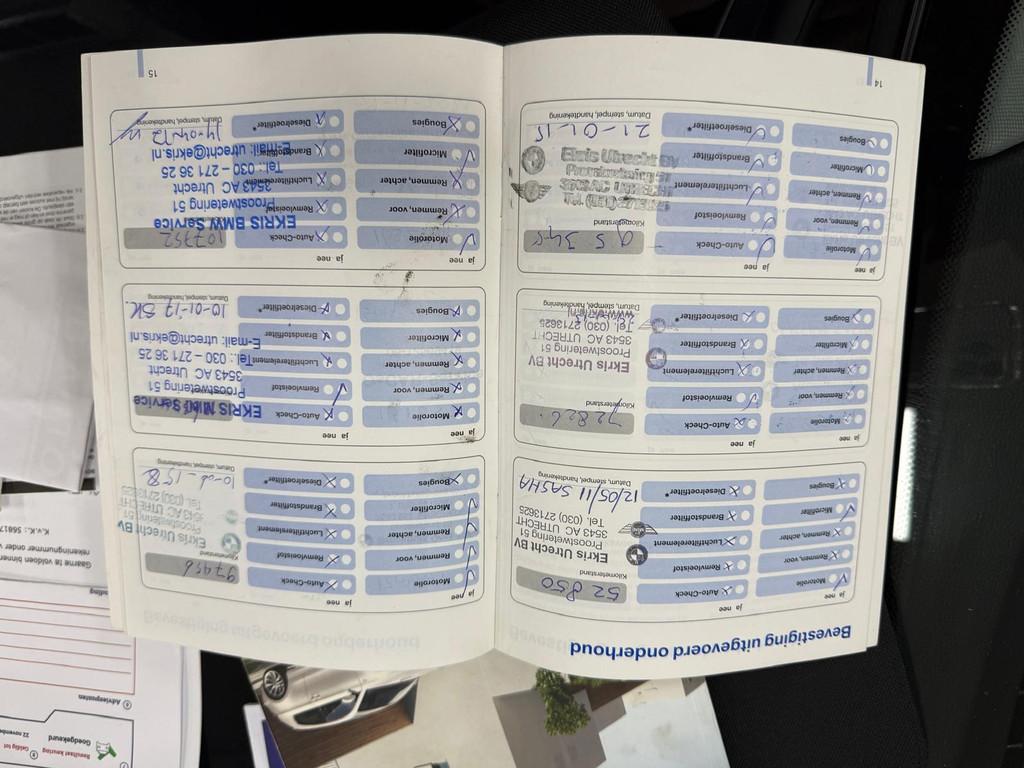 Bevestiging uitgevoerd onderhoud
ja nee
ja nee
Motorolie
Auto-Check
Kilometerstand
52 850
Remmen, voor
Remvloeistof
Remmen, achter
Luchtfilterelement
Microfilter
Brandstoffilter
Bougies
Dieselroetfilter*
Ekris Utrecht BV
Proostwetering 51
3543 AC UTRECHT
Tel. (030) 2713625
12/05/11 SASHA
Datum, stempel, handtekening
ja nee
ja nee
Motorolie
Auto-Check
Kilometerstand
72826
Remmen, voor
Remvloeistof
Remmen, achter
Luchtfilterelement
Microfilter
Brandstoffilter
Bougies
Dieselroetfilter*
Ekris Utrecht BV
Proostwetering 51
3543 AC UTRECHT
Tel. (030) 2713625
Datum, stempel, handtekening
ja nee
ja nee
Motorolie
Auto-Check
Kilometerstand
95 345
Remmen, voor
Remvloeistof
Remmen, achter
Luchtfilterelement
Microfilter
Brandstoffilter
Bougies
Dieselroetfilter*
Ekris Utrecht BV
Proostwetering 51
3543 AC UTRECHT
21-01-15
Datum, stempel, handtekening
14
ja nee
ja nee
Motorolie
Auto-Check
97456
Remmen, voor
Remvloeistof
Remmen, achter
Luchtfilterelement
Microfilter
Brandstoffilter
Bougies
Dieselroetfilter*
Ekris Utrecht BV
Proostwetering 51
3543 AC UTRECHT
Tel. (030) 2713625
Datum, stempel, handtekening
ja nee
ja nee
Motorolie
Auto-Check
Remmen, voor
Remvloeistof
Remmen, achter
Luchtfilterelement
Microfilter
Brandstoffilter
Bougies
Dieselroetfilter*
EKRIS MINI Service
Proostwetering 51
3543 AC Utrecht
Tel.: 030 – 271 36 25
E-mail: utrecht@ekris.nl
10-01-17
Datum, stempel, handtekening
ja nee
ja nee
Motorolie
Auto-Check
107352
Remmen, voor
Remvloeistof
Remmen, achter
Luchtfilterelement
Microfilter
Brandstoffilter
Bougies
Dieselroetfilter*
EKRIS BMW Service
Proostwetering 51
3543 AC Utrecht
Tel.: 030 – 271 36 25
E-mail: utrecht@ekris.nl
Datum, stempel, handtekening
15
Resultaat keuring
Goedgekeurd
Geldig tot
Adviespunten
Gaarne te voldoen binnen
rekeningnummer onder
K.v.K.: